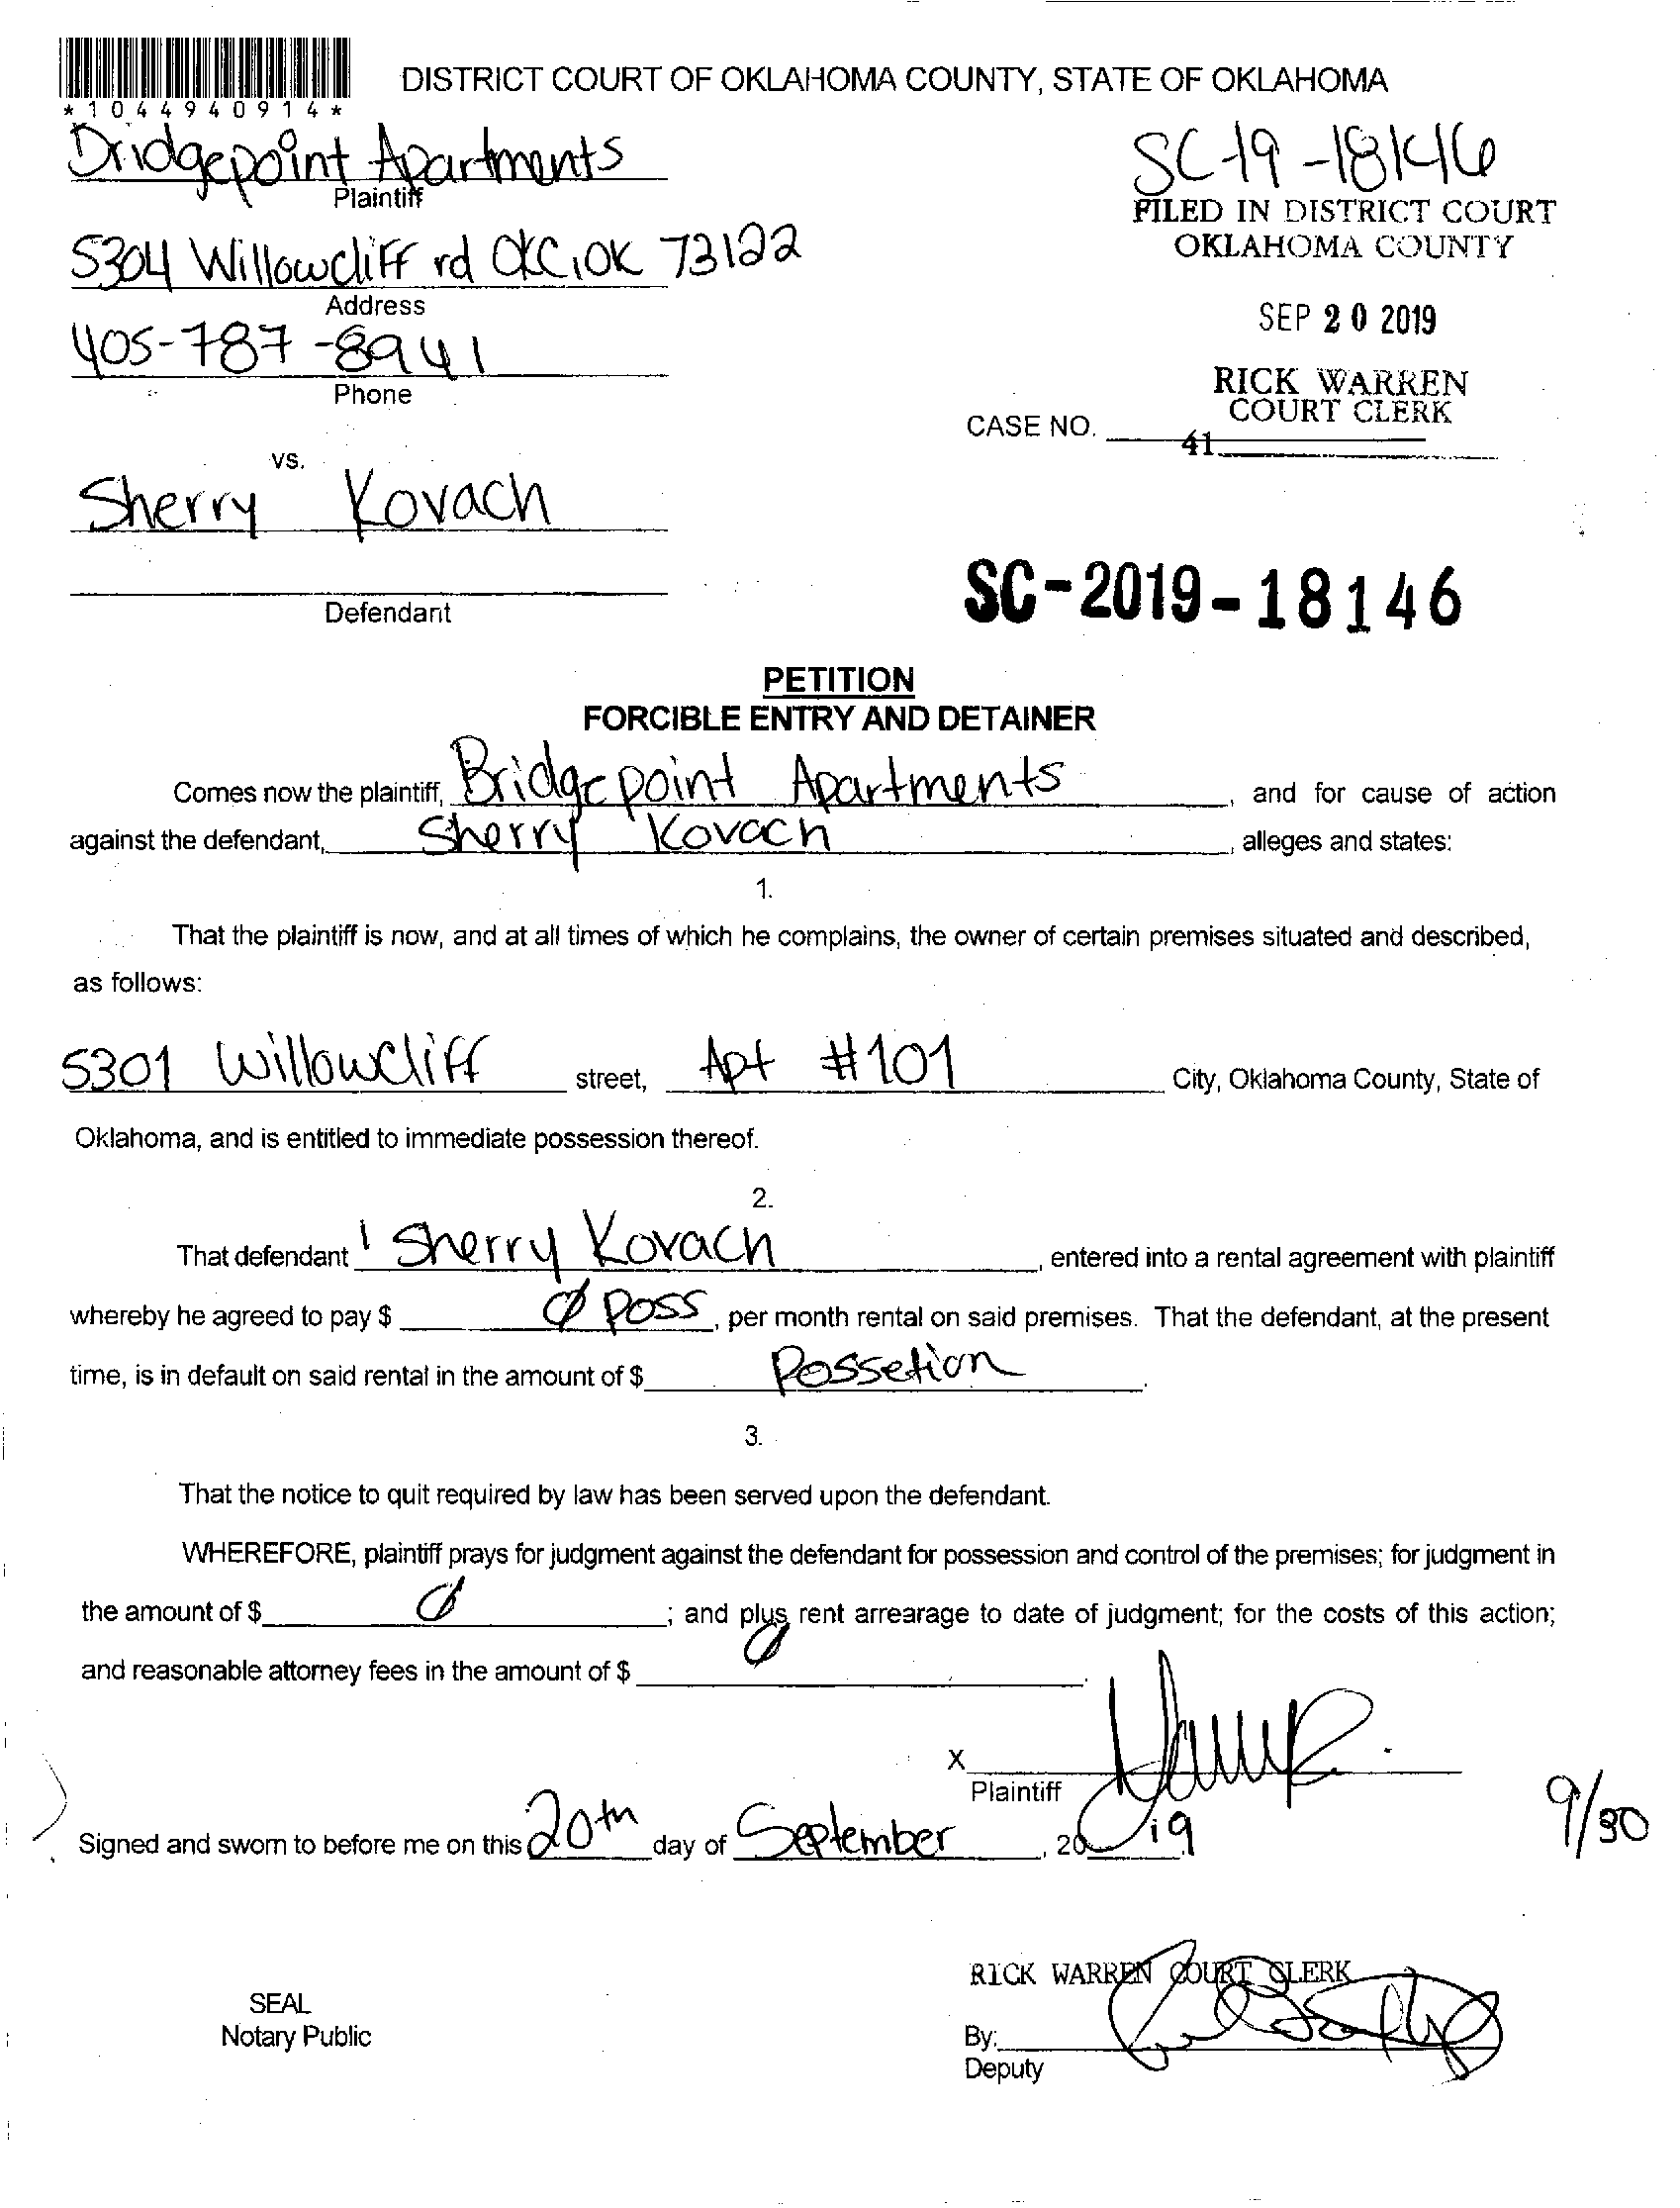 DISTRICT COURT OF OKLAHOMA COUNTY, STATE OF OKLAHOMA
*1044940914*
Bridgepoint Apartments
Plaintiff
SC-19-18146
FILED IN DISTRICT COURT
OKLAHOMA COUNTY
5304 Willowcliff rd OKC, OK 73122
Address
SEP 20 2019
405-787-8941
Phone
RICK WARREN
COURT CLERK
CASE NO.
41
vs.
Sherry Kovach
Defendant
SC-2019-18146
PETITION
FORCIBLE ENTRY AND DETAINER
Comes now the plaintiff, Bridgepoint Apartments, and for cause of action
against the defendant, Sherry Kovach, alleges and states:
1.
That the plaintiff is now, and at all times of which he complains, the owner of certain premises situated and described,
as follows:
5301 Willowcliff street, Apt #101 City, Oklahoma County, State of
Oklahoma, and is entitled to immediate possession thereof.
2.
That defendant Sherry Kovach, entered into a rental agreement with plaintiff
whereby he agreed to pay $ Ø Poss, per month rental on said premises. That the defendant, at the present
time, is in default on said rental in the amount of $ Possetion.
3.
That the notice to quit required by law has been served upon the defendant.
WHEREFORE, plaintiff prays for judgment against the defendant for possession and control of the premises; for judgment in
the amount of $ Ø; and plus rent arrearage to date of judgment; for the costs of this action;
and reasonable attorney fees in the amount of $ Ø.
X
Plaintiff
Signed and sworn to before me on this 20th day of September, 2019.
9/30
RICK WARREN COURT CLERK
SEAL
Notary Public
By:
Deputy